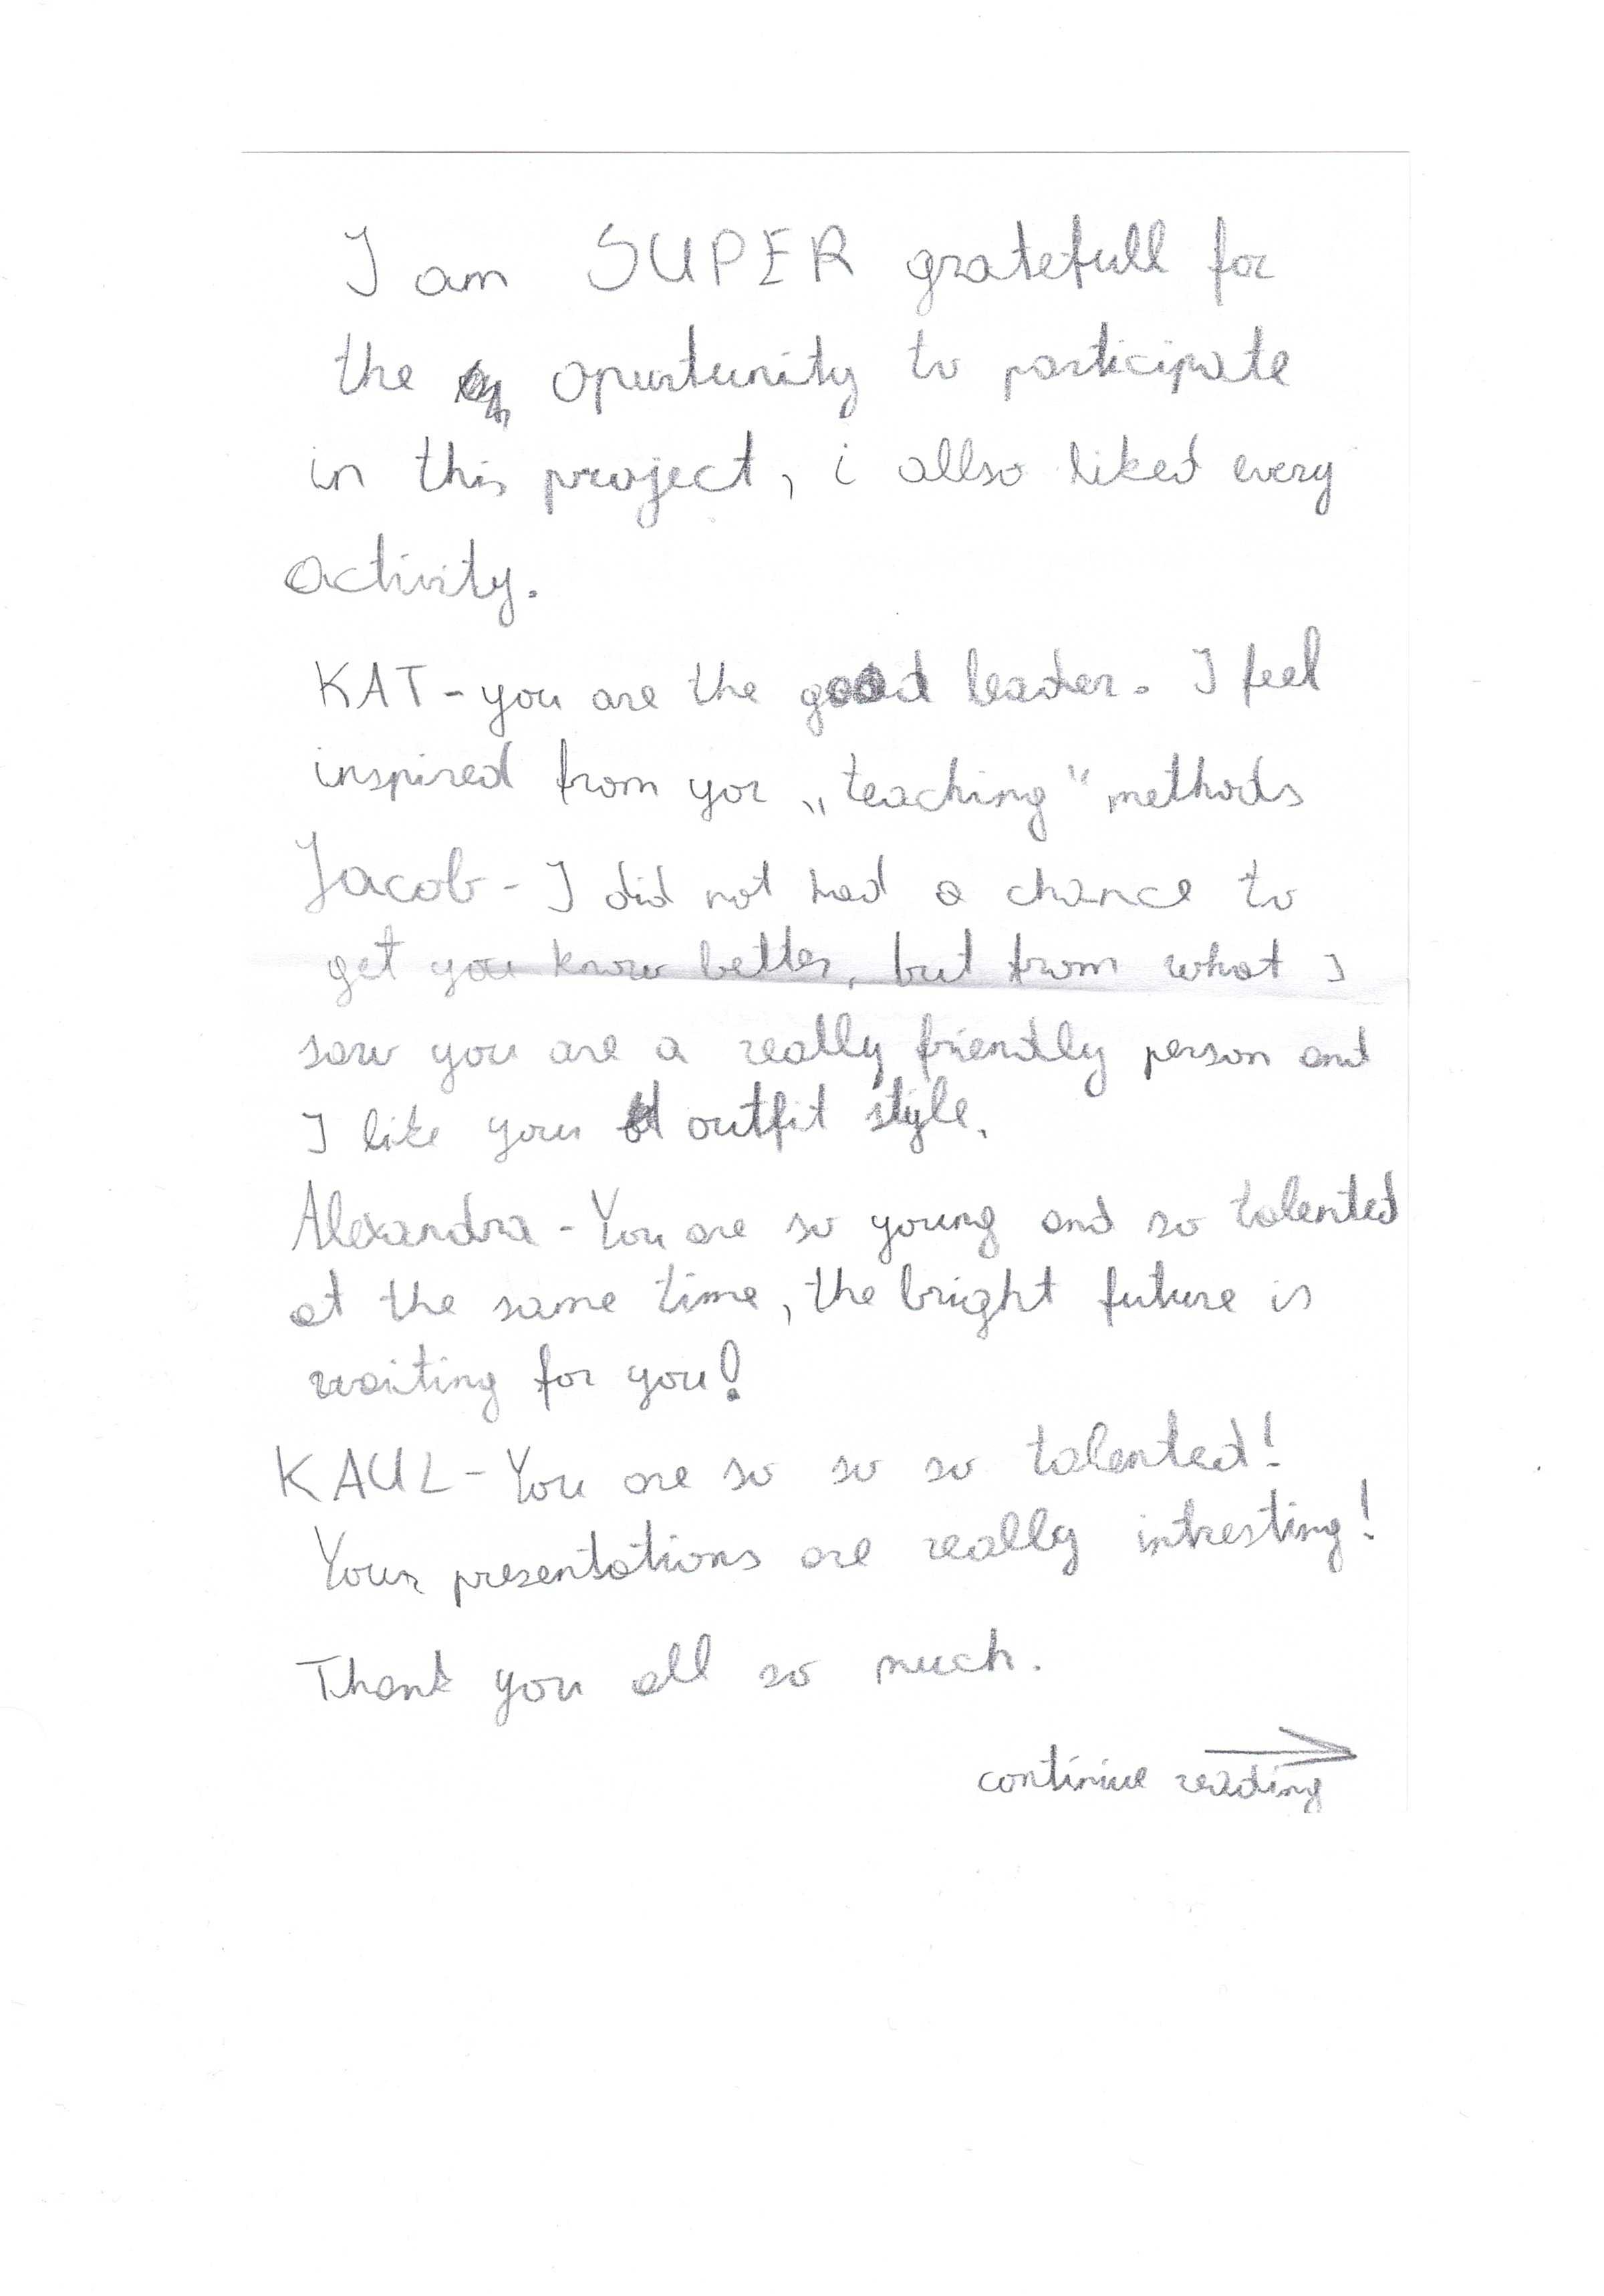 I am SUPER gratefull for
the oportunity to participate
in this project, i allso liked every
activity.
KAT - you are the good leader. I feel
inspired from yor „teaching" methods
Jacob - I did not had a chance to
get you know better, but from what I
saw you are a really friendly person and
I like your outfit style.
Alexandra - You are so young and so talented
at the same time, the bright future is
waiting for you!
KAUL - You are so so so talented!
Your presentations are really intresting!
Thank you all so much.
continiue reading